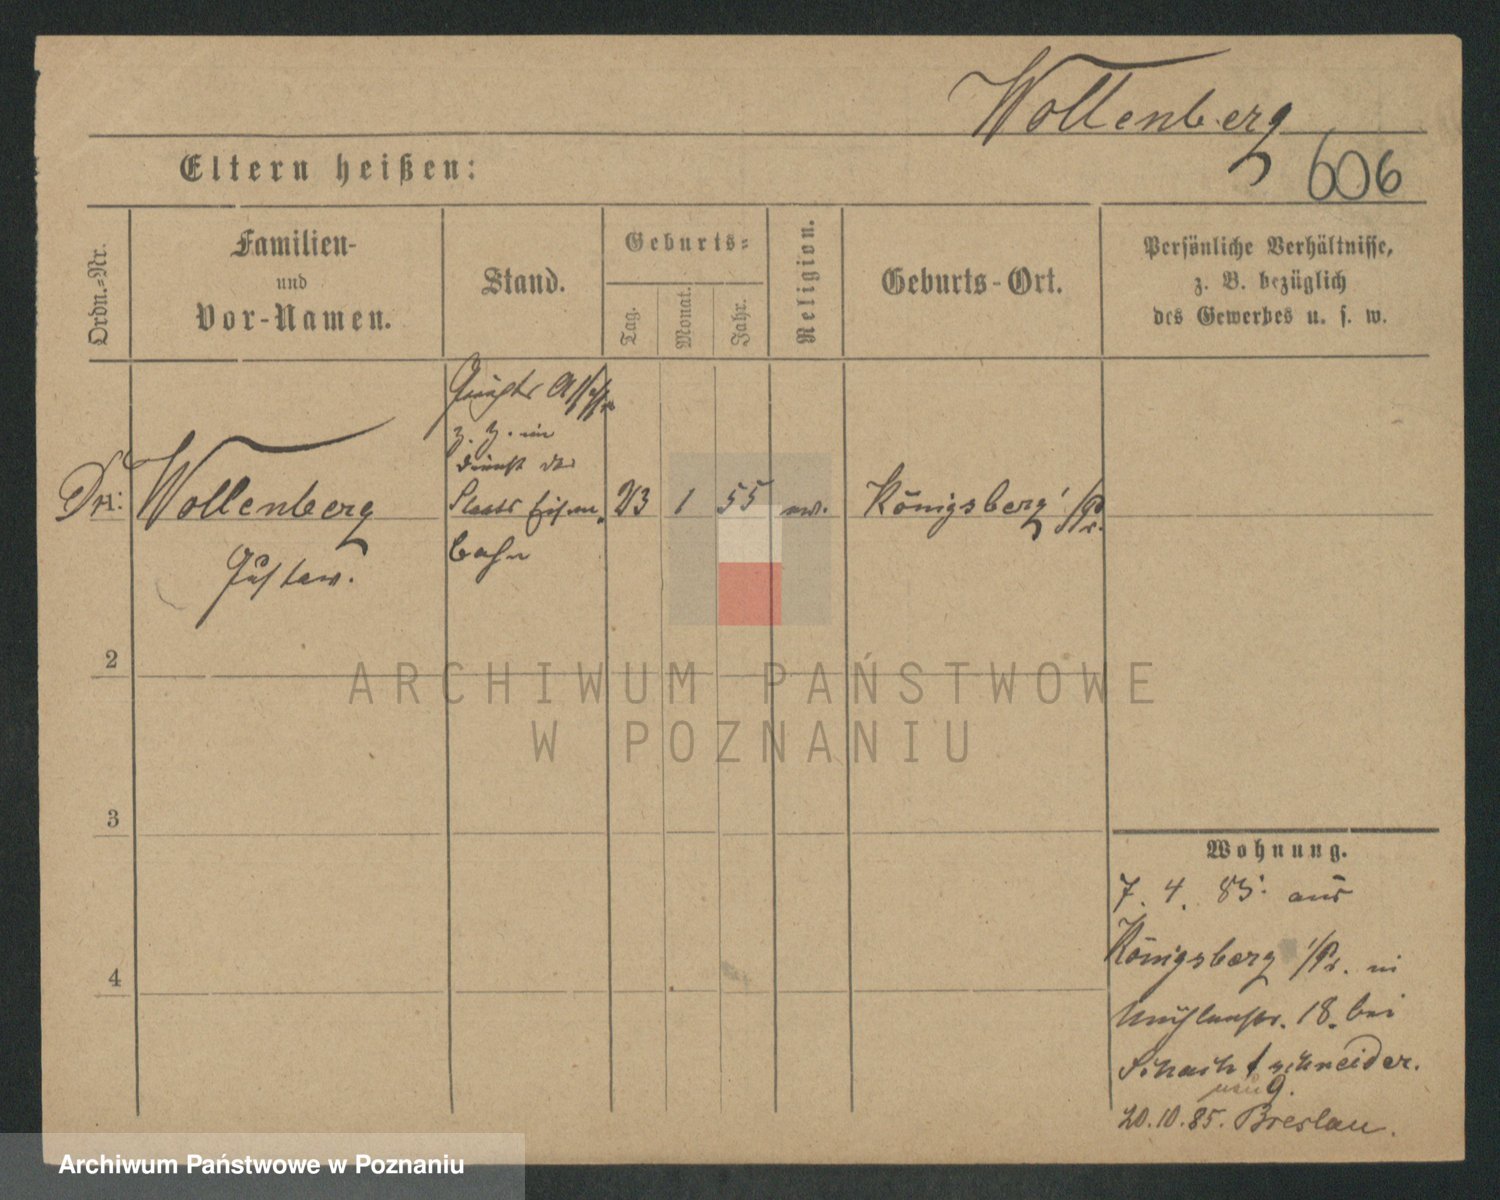 Wollenberg
606
Eltern heißen:
Ordn.-Nr.
Familien-
und
Vor-Namen.
Stand.
Geburts-
Tag.
Monat.
Jahr.
Religion.
Geburts-Ort.
Persönliche Verhältnisse,
z. B. bezüglich
des Gewerbes u. s. w.
Dr: Wollenberg
Gustav.
Gerichts Assessor
z. Z. im
Dienst der
Staats Eisen
bahn
23 1 55 ev. Königsberg i/Pr.
2
3
4
Wohnung.
7. 4. 85. aus
Königsberg i/Pr. in
Mühlenstr. 18. bei
Schachtschneider.
20.10.85. Breslau.
ARCHIWUM PAŃSTWOWE
W POZNANIU
Archiwum Państwowe w Poznaniu